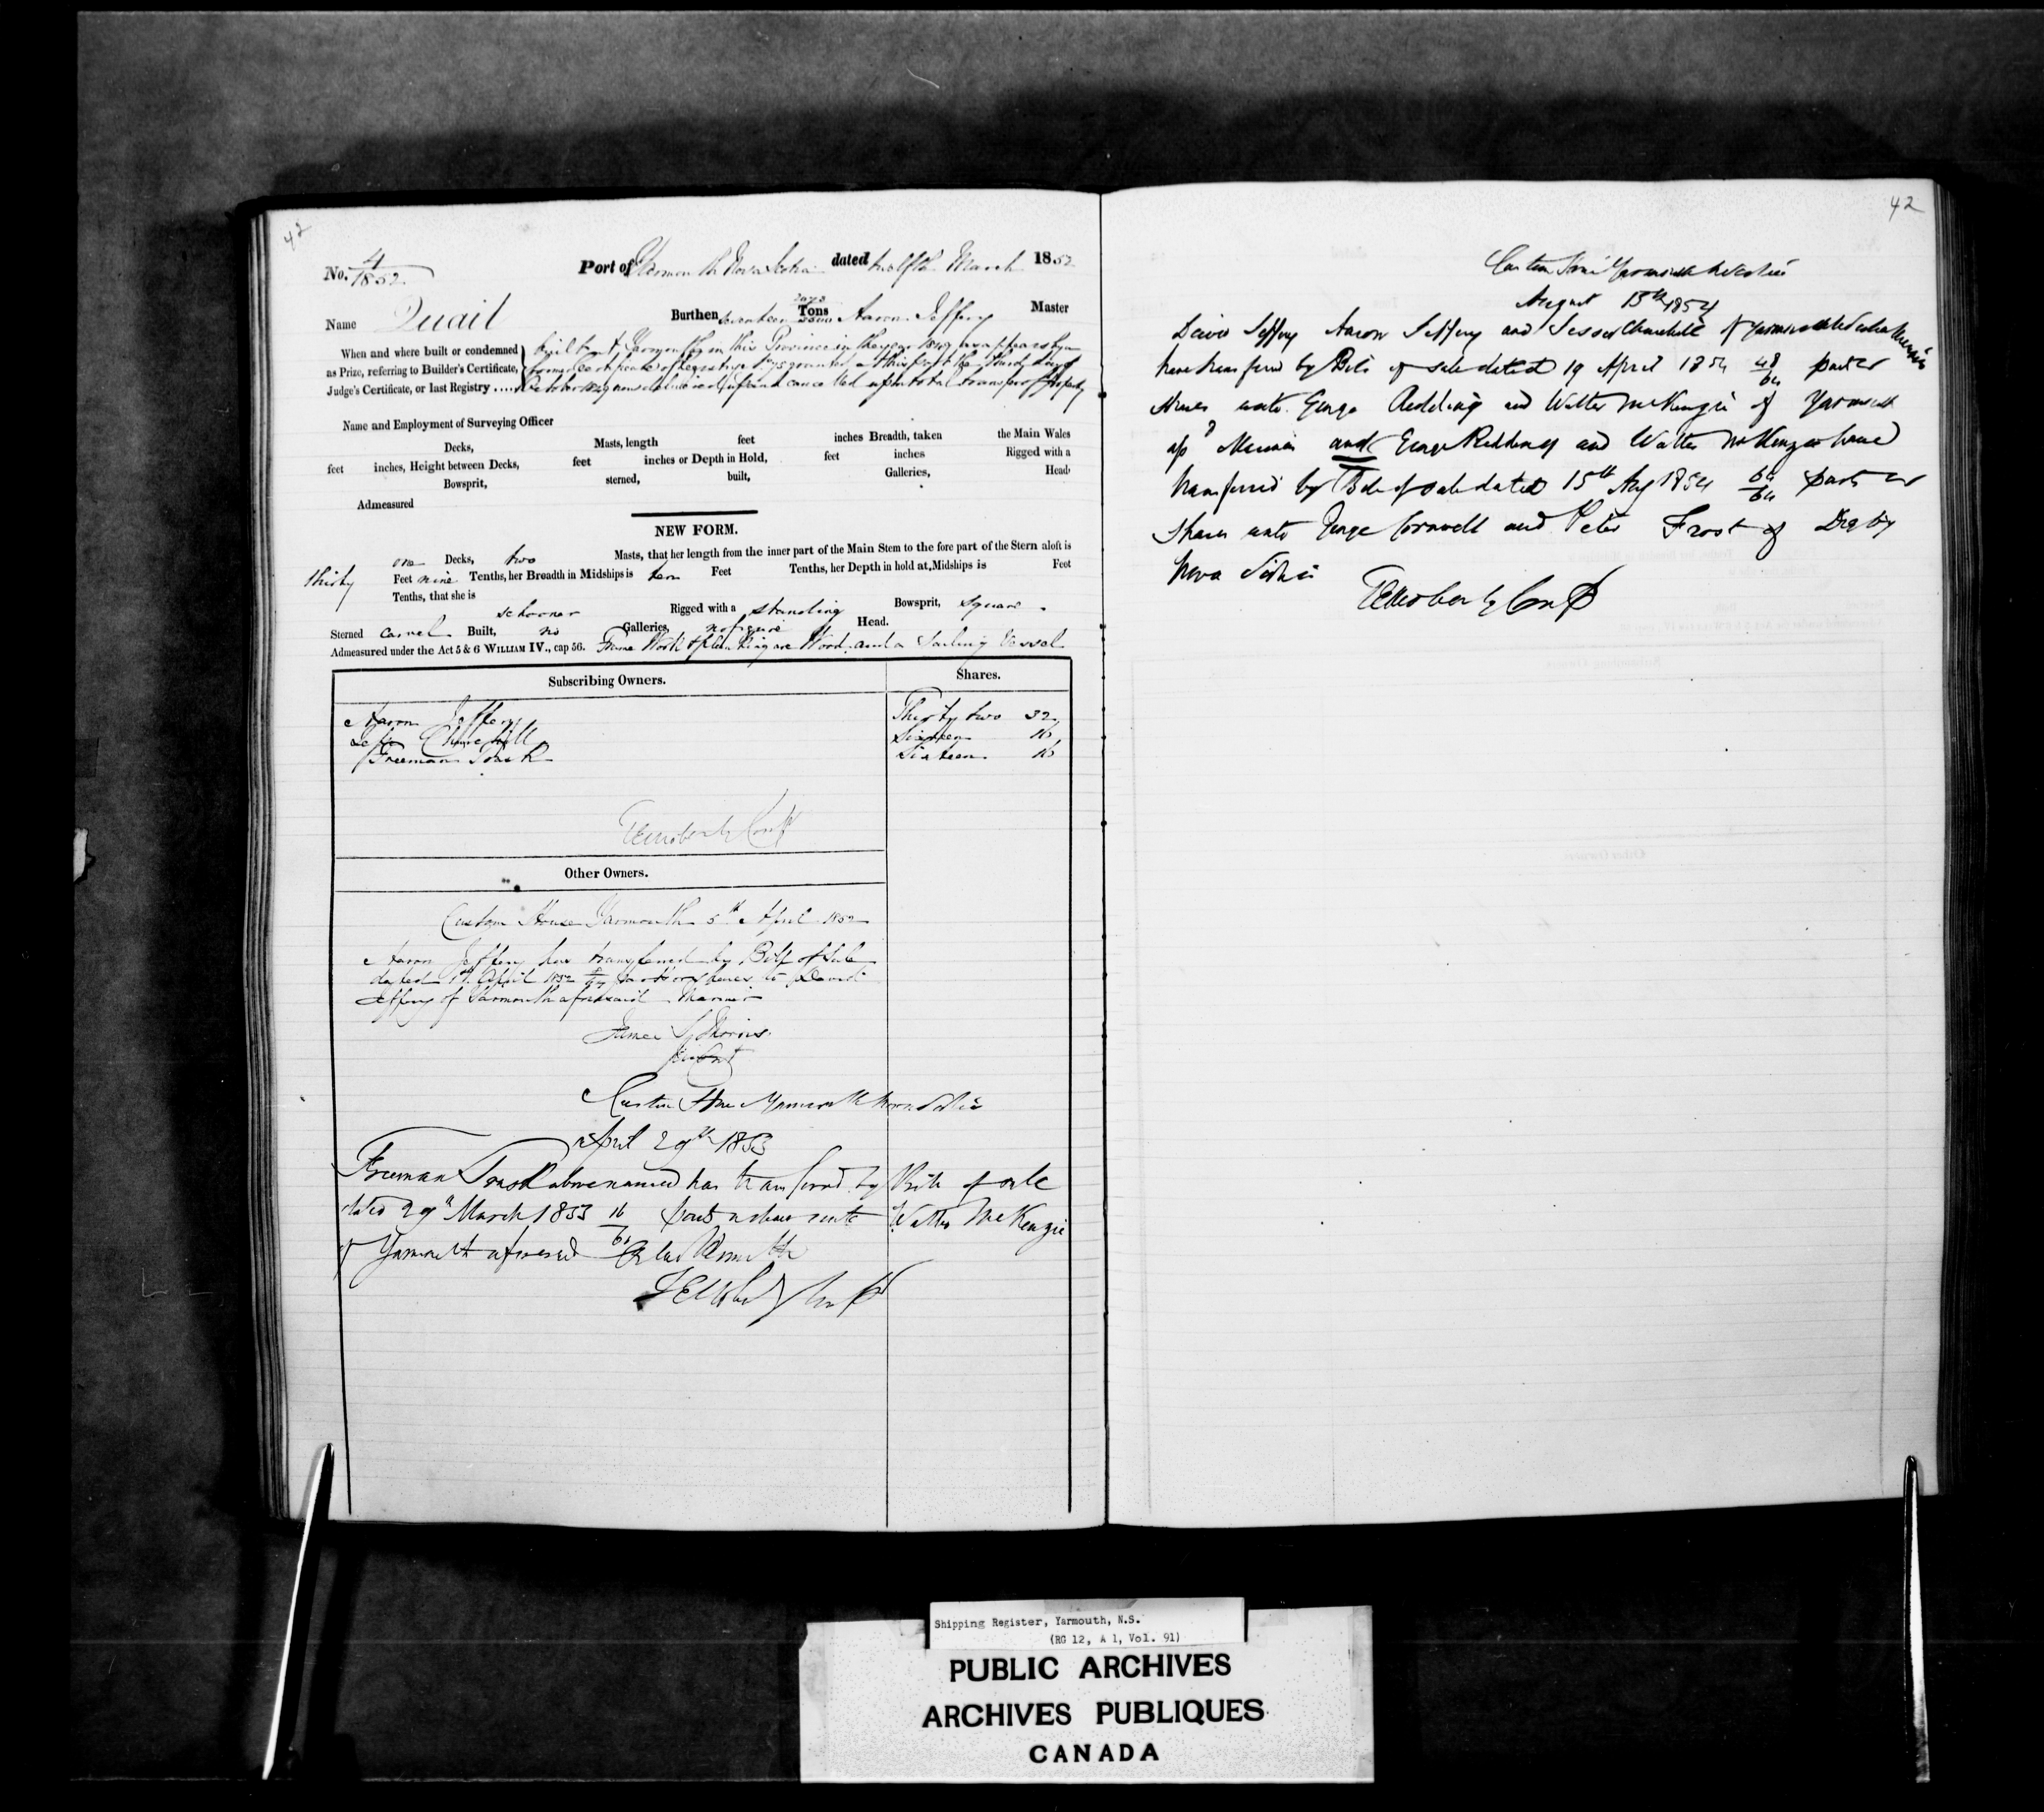 42
No. 4/1852 Port of Yarmouth Nova Scotia dated twelfth March 1852
Name Quail Burthen Seventeen 2073/3500 Tons Aaron Jeffery Master
When and where built or condemned built at Yarmouth in this Province in the year 1849 as appears by a
as Prize, referring to Builder's Certificate, former Certificate of Registry granted at this port the third day of
Judge's Certificate, or last Registry .... October 1849 now delivered up and cancelled upon total transfer of property
Name and Employment of Surveying Officer
Decks, Masts, length feet inches Breadth, taken the Main Wales
feet inches, Height between Decks, feet inches or Depth in Hold, feet inches Rigged with a
Bowsprit, sterned, built, Galleries, Head
Admeasured
NEW FORM.
one Decks, two Masts, that her length from the inner part of the Main Stem to the fore part of the Stern aloft is
thirty Feet nine Tenths, her Breadth in Midships is ten Feet Tenths, her Depth in hold at Midships is Feet
Tenths, that she is
schooner Rigged with a standing Bowsprit, square
Sterned carvel Built, no Galleries, no figure Head.
Admeasured under the Act 5 & 6 WILLIAM IV., cap 56. Frame Work & planking are Wood and a Sailing Vessel
Subscribing Owners. Shares.
Aaron Jeffery Thirty two 32
Churchill Sixteen 16
Freeman Trask Sixteen 16
Other Owners.
Custom House Yarmouth 5th April 1852
Aaron Jeffery has transferred by Bill of Sale
dated 1st April 1852 parts or shares to David
Jeffery of Yarmouth aforesaid Mariner
James
Custom House Yarmouth Nova Scotia
April 29th 1853
Freeman Trask above named has transferred by Bill of sale
dated 29th March 1853 16/64 parts or shares unto Walter McKenzie
of Yarmouth aforesaid
42
Custom House Yarmouth N Scotia
August 15th 1854
David Jeffery Aaron Jeffery and Jesse Churchill of Yarmouth Nova Scotia Mariners
have transferred by Bill of sale dated 19 April 1854 48/64 parts or
shares unto George Redding and Walter McKenzie of Yarmouth
afd Mariners and George Redding and Walter McKenzie have
transferred by Bill of sale dated 15th Aug 1854 64/64 parts or
shares unto George Cornwell and Peter Frost of Digby
Nova Scotia
Shipping Register, Yarmouth, N.S.
(RG 12, A 1, Vol. 91)
PUBLIC ARCHIVES
ARCHIVES PUBLIQUES
CANADA